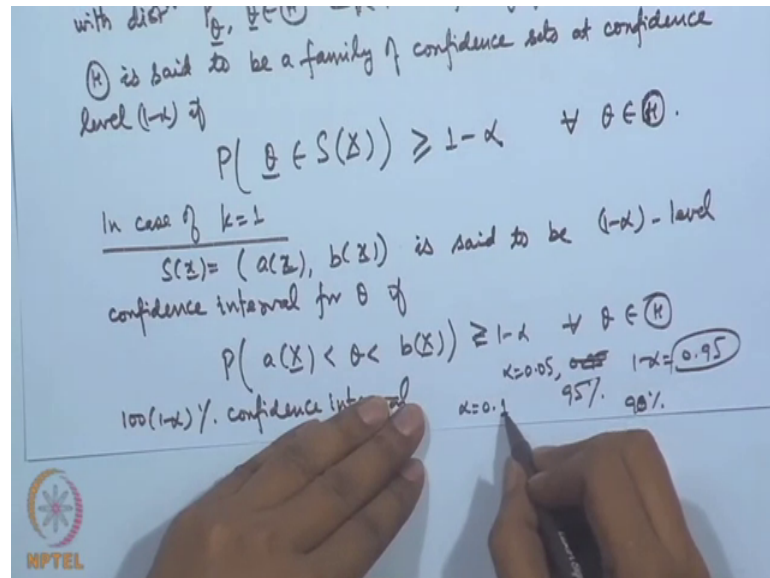 with distⁿ P_θ, θ ∈ Ⓗ
Ⓗ is said to be a family of confidence sets at confidence
level (1-α) if
P( θ ∈ S(X) ) ≥ 1 - α ∀ θ ∈ Ⓗ.
In case of k=1
S(x) = ( a(x), b(x) ) is said to be (1-α) - level
confidence interval for θ if
P( a(X) < θ < b(X) ) ≥ 1-α ∀ θ ∈ Ⓗ
α=0.05, 1-α = 0.95
100(1-α) %. confidence interval α=0.1 95%. 90%.
NPTEL